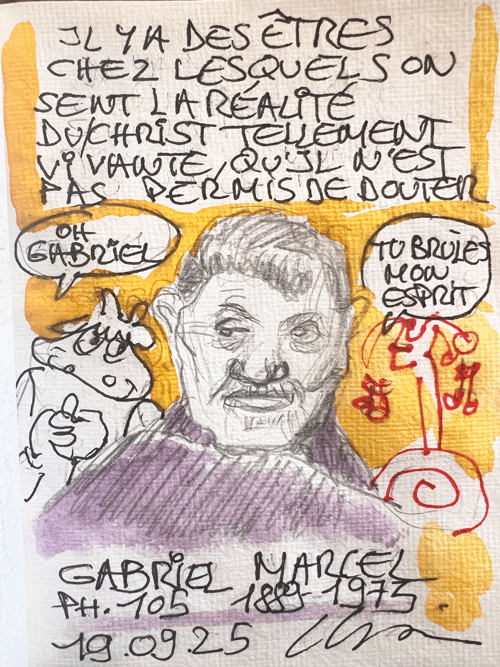 IL Y A DES ÊTRES
CHEZ LESQUELS ON
SENT LA RÉALITÉ
DU CHRIST TELLEMENT
VIVANTE, QU'IL N'EST
PAS PERMIS DE DOUTER
OH
GABRIEL
TU BRÛLES
MON
ESPRIT
GABRIEL MARCEL
PH. 105 1889-1973.
19.09.25